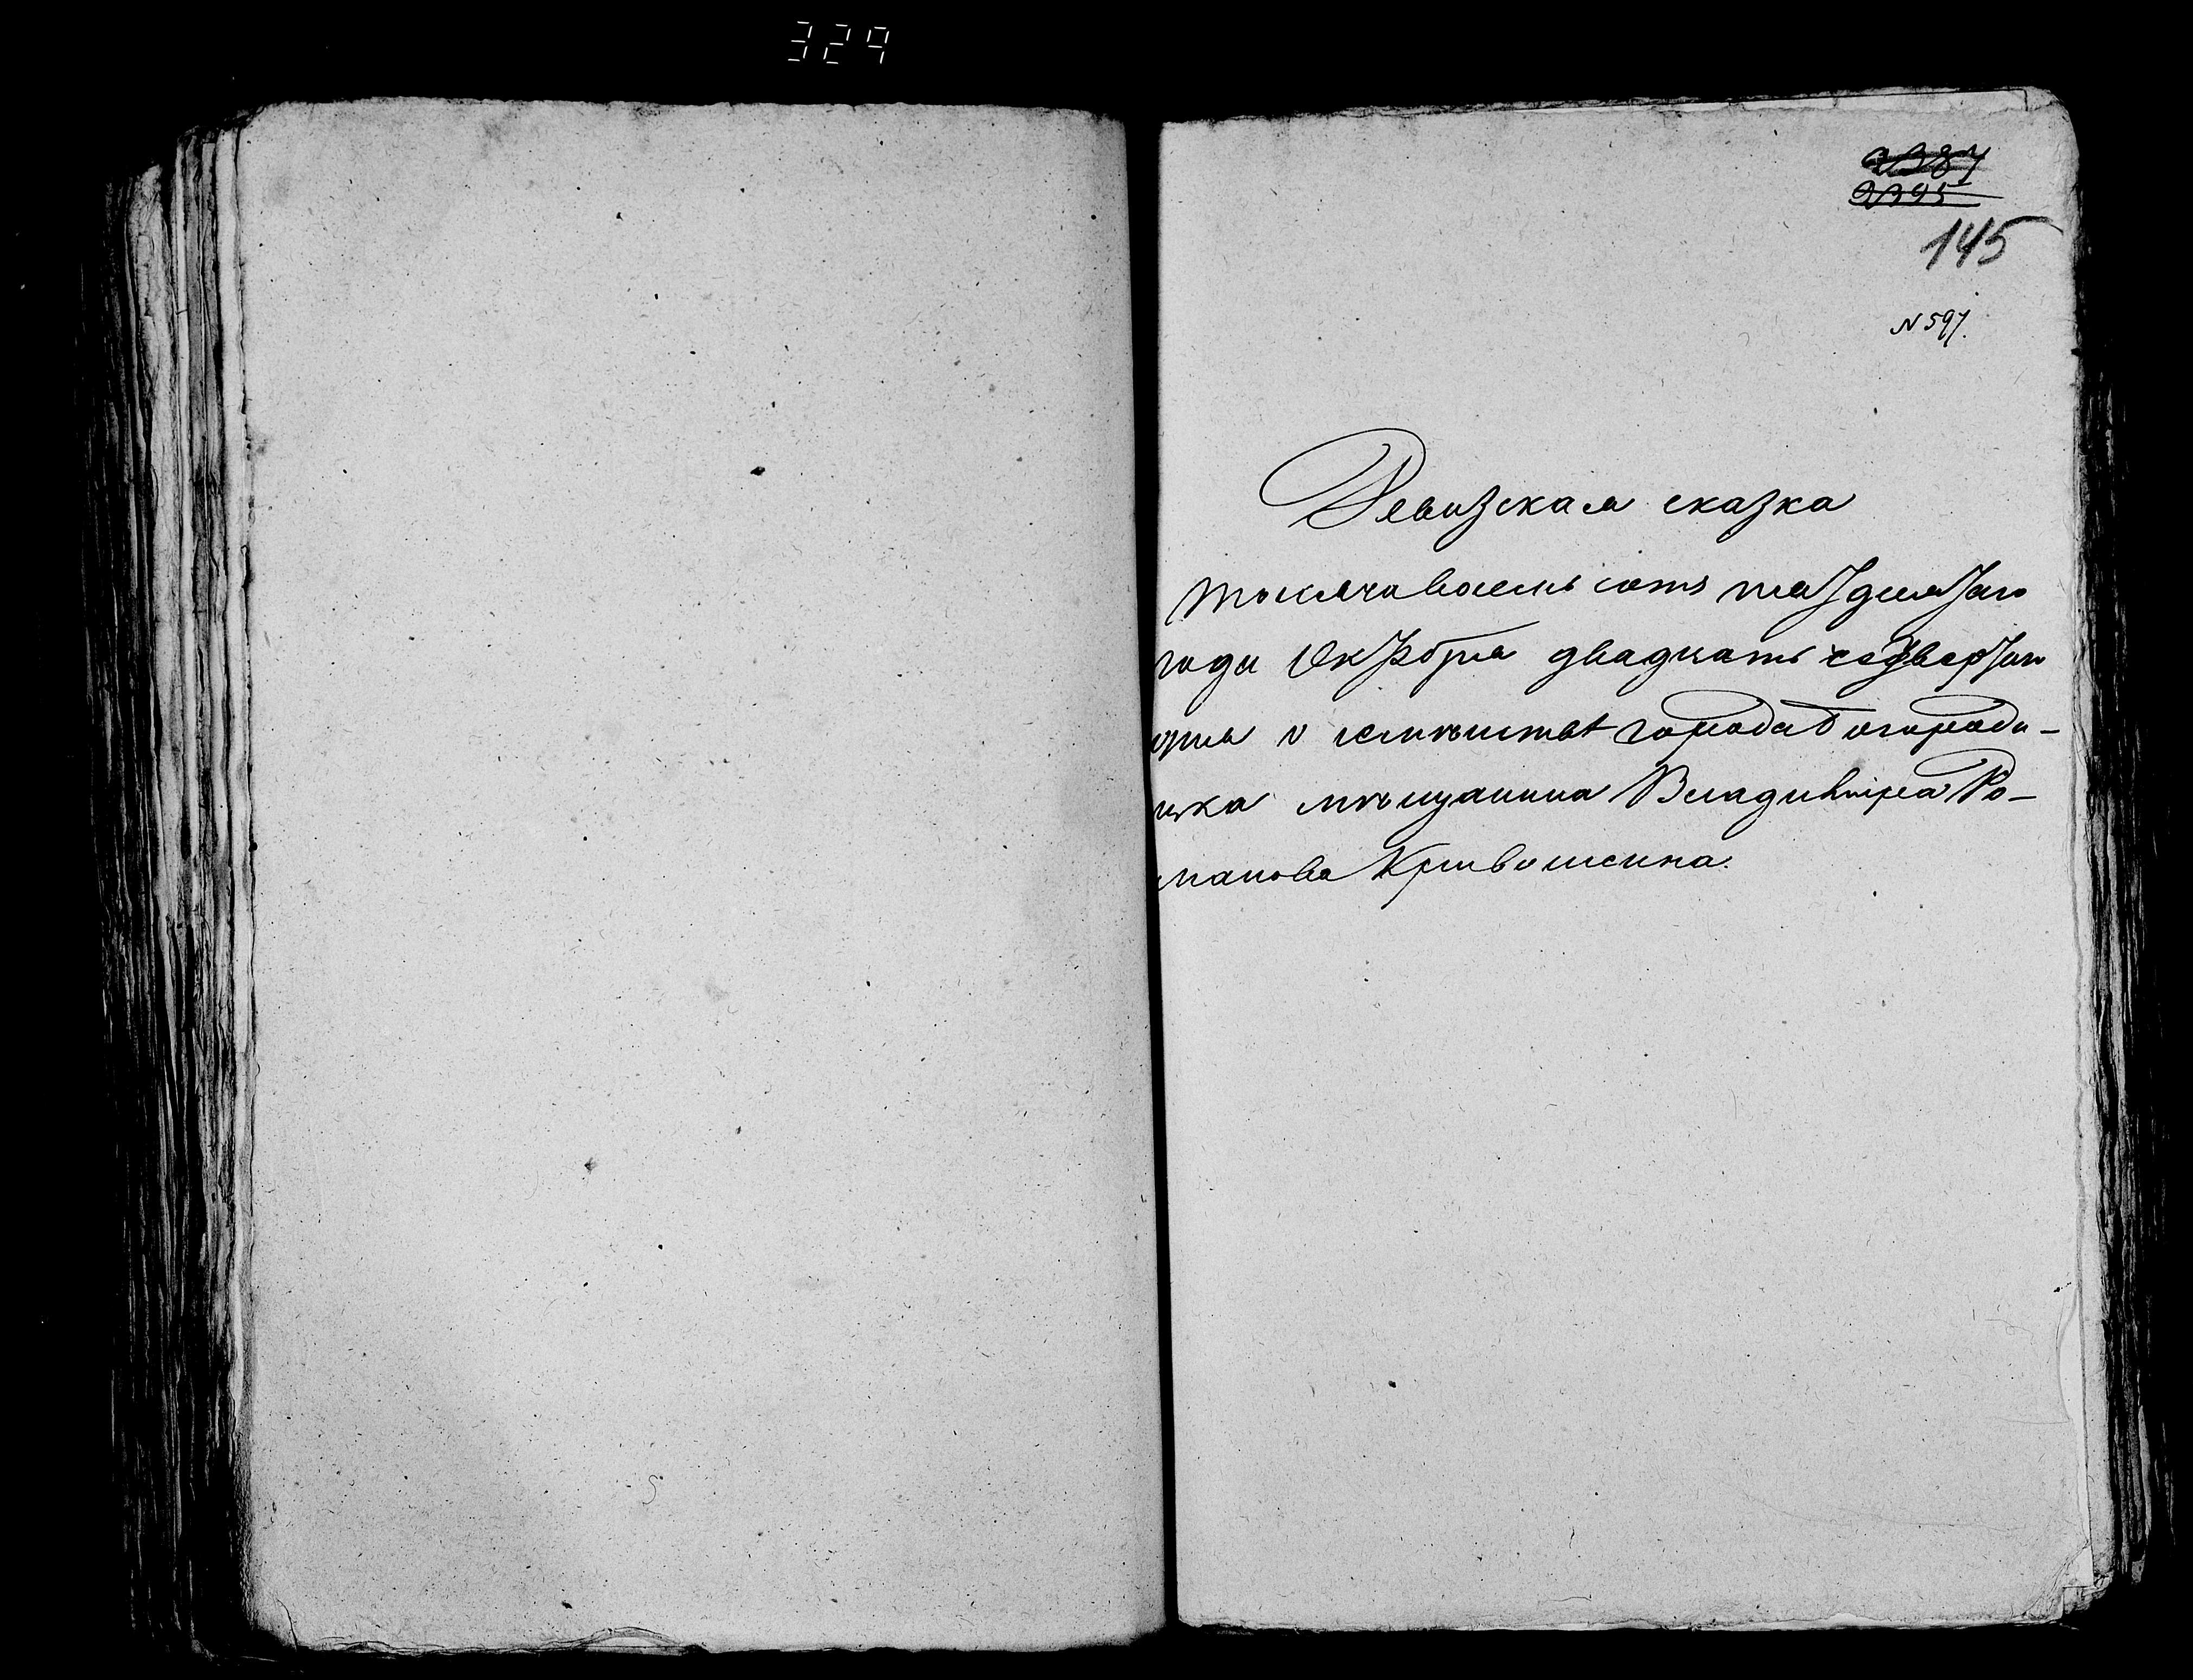 329
2387
2395
145
N 597.
Ревизская сказка
тысяча восемь сотъ пятдесятаго
года Октября двадцать четвертаго
дня о семействѣ города Богороди-
цка мѣщанина Владимира Ро-
манова Кривошеина.